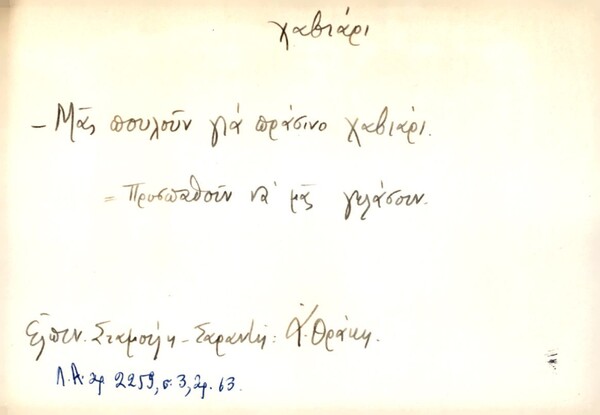 χαβιάρι
– Μᾶς πουλοῦν γιά πράσινο χαβιάρι.
= Προσπαθοῦν νά μᾶς γελάσουν.
Ἐλπιν. Σταμούλη – Σαραντῆ: Ἀ. Θράκη.
Λ.Α. ἀρ 2259, σ. 3, ἀρ. 63.